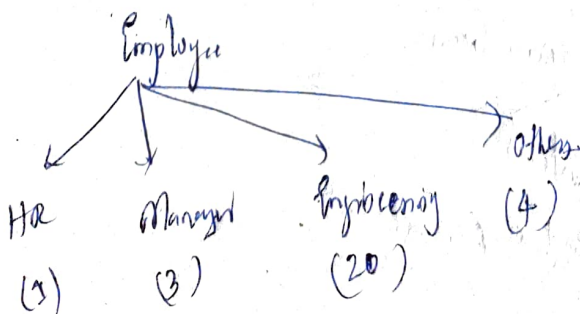 Employee
HR Manager Engineering Others
(3) (20) (4)